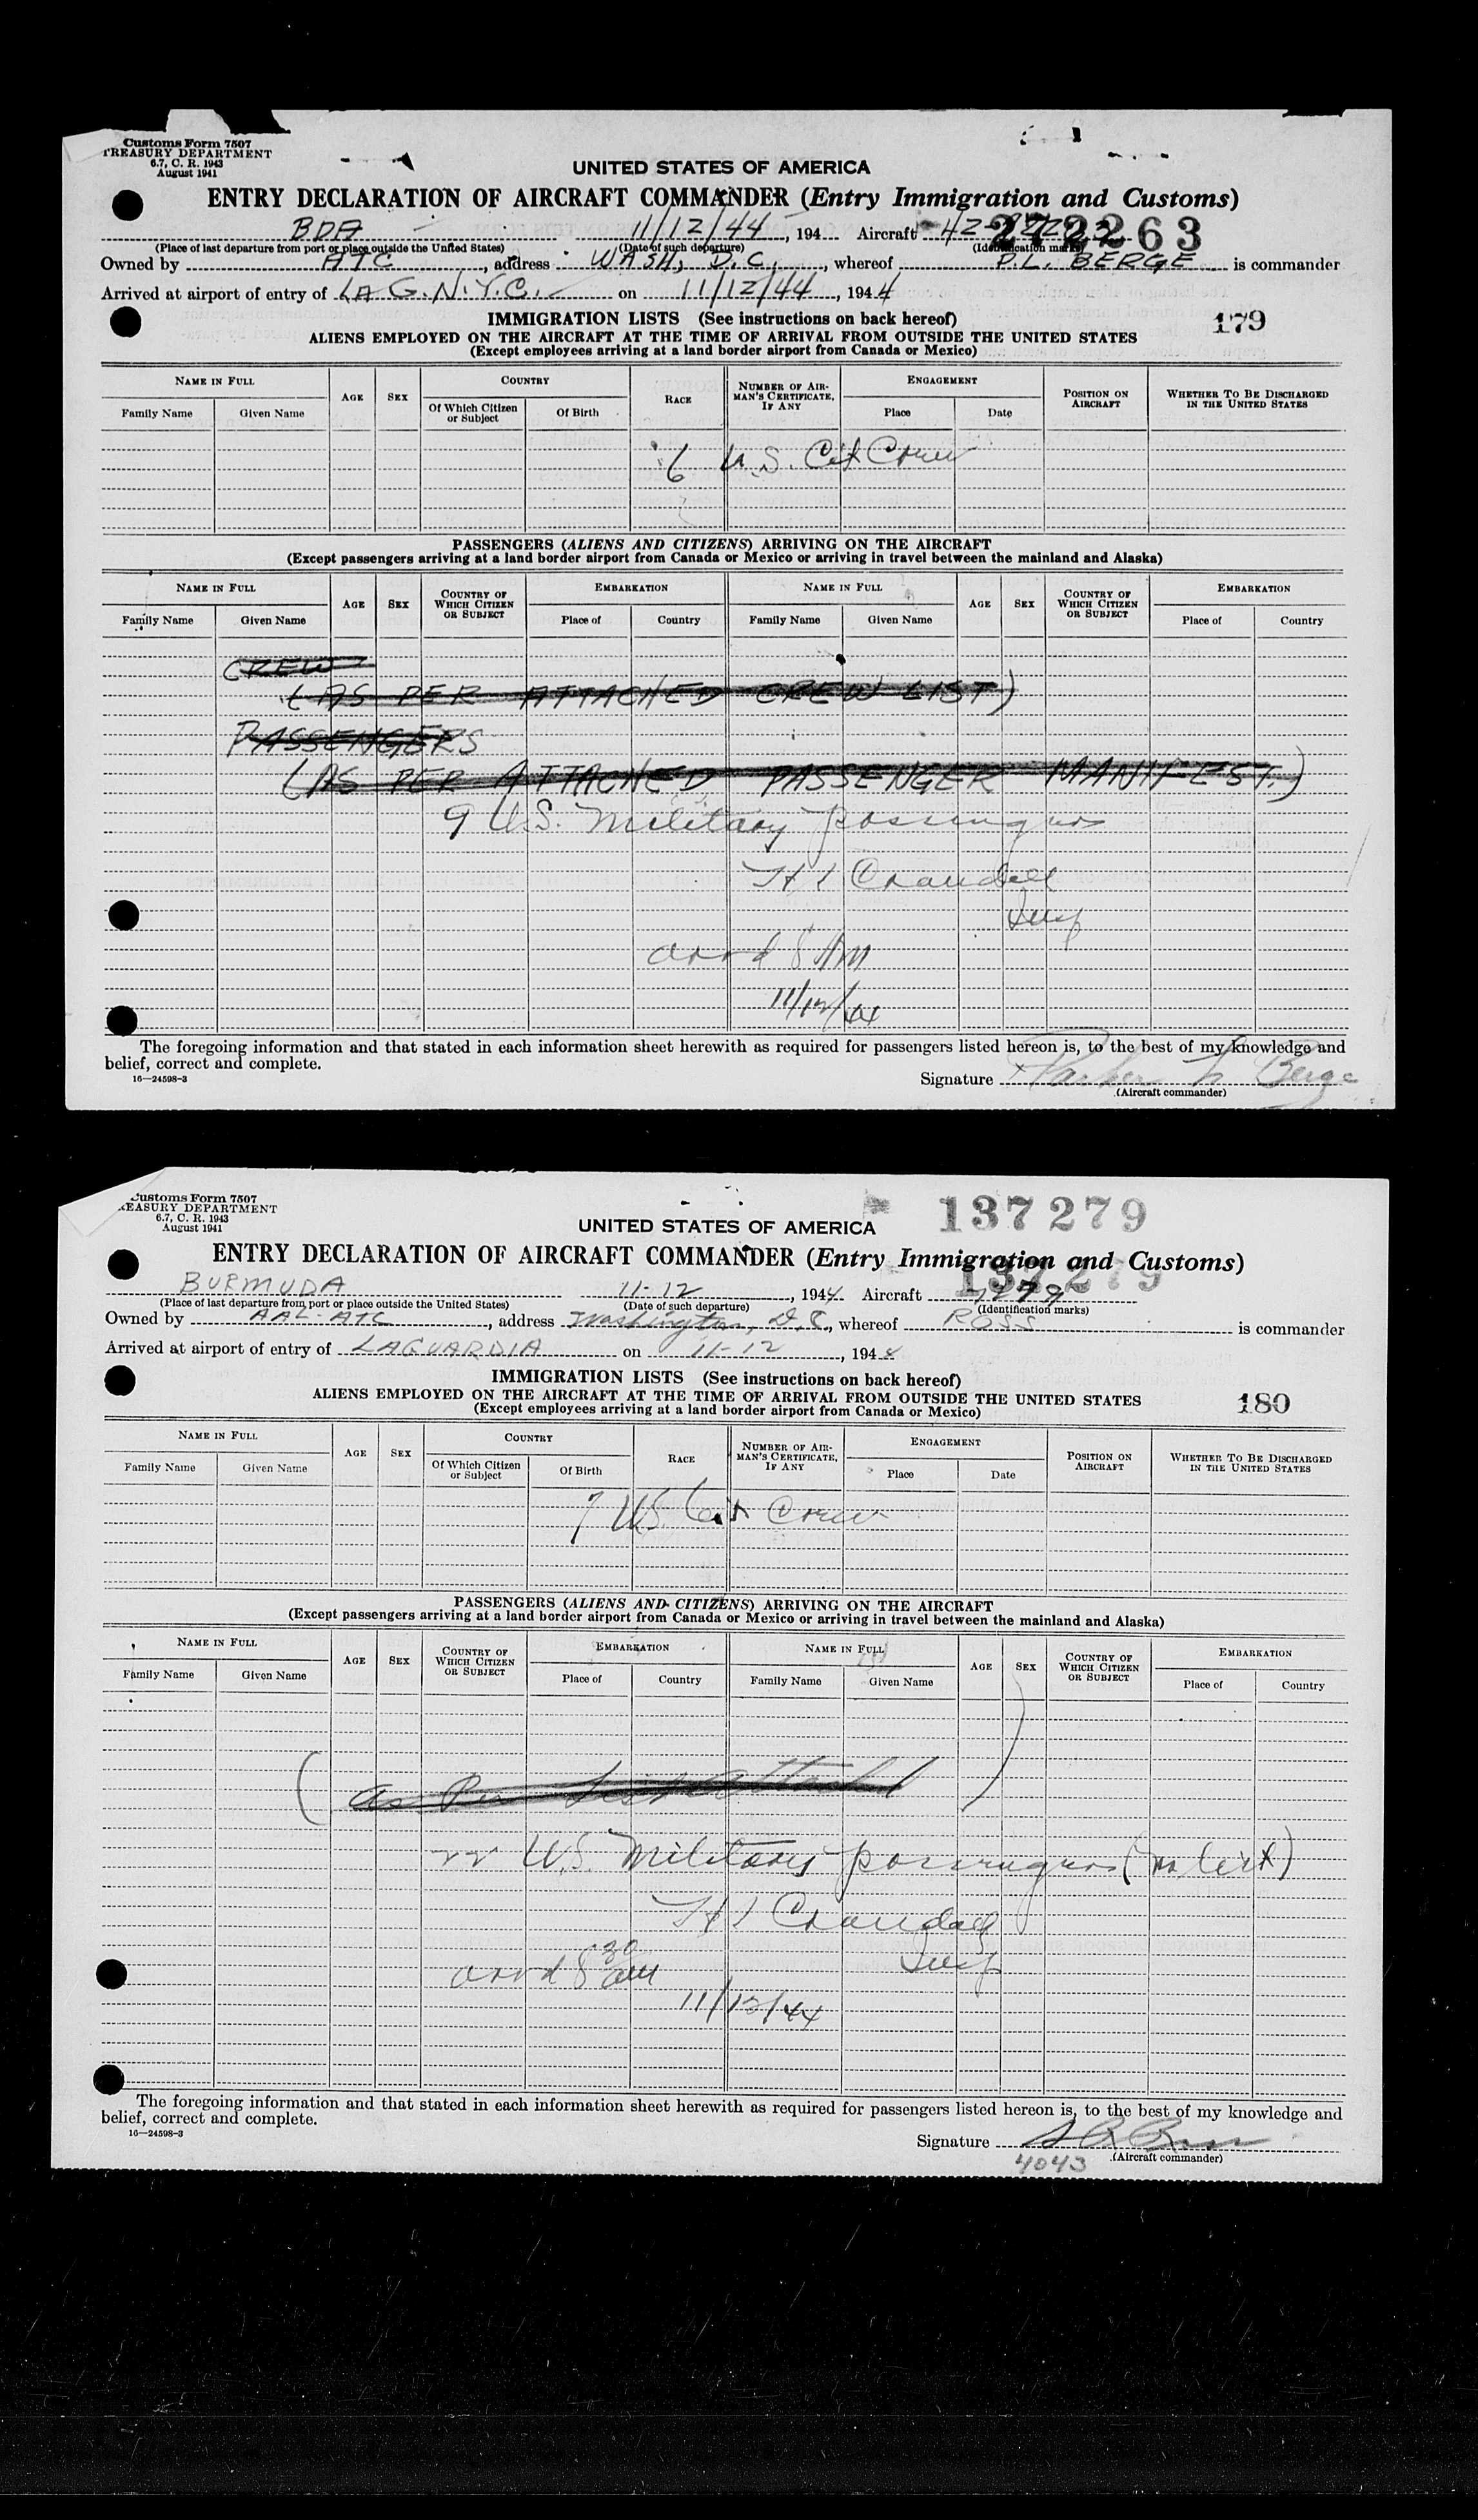 Customs Form 7507
TREASURY DEPARTMENT
6.7, C. R. 1943
August 1941
UNITED STATES OF AMERICA
ENTRY DECLARATION OF AIRCRAFT COMMANDER (Entry Immigration and Customs)
BDA 11/12/44, 194 Aircraft 272263
(Place of last departure from port or place outside the United States) (Date of such departure) (Identification marks)
Owned by ATC, address WASH, D.C., whereof P.L. BERGE is commander
Arrived at airport of entry of LA G. N.Y.C. on 11/12/44, 1944
IMMIGRATION LISTS (See instructions on back hereof) 179
ALIENS EMPLOYED ON THE AIRCRAFT AT THE TIME OF ARRIVAL FROM OUTSIDE THE UNITED STATES
(Except employees arriving at a land border airport from Canada or Mexico)
NAME IN FULL AGE SEX COUNTRY RACE NUMBER OF AIRMAN'S CERTIFICATE, IF ANY ENGAGEMENT POSITION ON AIRCRAFT WHETHER TO BE DISCHARGED IN THE UNITED STATES
Family Name Given Name Of Which Citizen or Subject Of Birth Place Date
6 U.S. Cit Crew
PASSENGERS (ALIENS AND CITIZENS) ARRIVING ON THE AIRCRAFT
(Except passengers arriving at a land border airport from Canada or Mexico or arriving in travel between the mainland and Alaska)
NAME IN FULL AGE SEX COUNTRY OF WHICH CITIZEN OR SUBJECT EMBARKATION NAME IN FULL AGE SEX COUNTRY OF WHICH CITIZEN OR SUBJECT EMBARKATION
Family Name Given Name Place of Country Family Name Given Name Place of Country
CREW
(AS PER ATTACHED CREW LIST)
PASSENGERS
(AS PER ATTACHED PASSENGER MANIFEST.)
9 U.S. Military passengers
H I Crandall
Insp
arrd 8 AM
11/12/44
The foregoing information and that stated in each information sheet herewith as required for passengers listed hereon is, to the best of my knowledge and
belief, correct and complete.
16—24598-3
Signature Parker L Berge
(Aircraft commander)
Customs Form 7507
TREASURY DEPARTMENT
6.7, C. R. 1943
August 1941
137279
UNITED STATES OF AMERICA
ENTRY DECLARATION OF AIRCRAFT COMMANDER (Entry Immigration and Customs)
137279
BURMUDA 11-12, 1944 Aircraft 7279
(Place of last departure from port or place outside the United States) (Date of such departure) (Identification marks)
Owned by AAL-ATC, address Washington, D.C., whereof ROSS is commander
Arrived at airport of entry of LAGUARDIA on 11-12, 1944
IMMIGRATION LISTS (See instructions on back hereof)
ALIENS EMPLOYED ON THE AIRCRAFT AT THE TIME OF ARRIVAL FROM OUTSIDE THE UNITED STATES 180
(Except employees arriving at a land border airport from Canada or Mexico)
NAME IN FULL AGE SEX COUNTRY RACE NUMBER OF AIRMAN'S CERTIFICATE, IF ANY ENGAGEMENT POSITION ON AIRCRAFT WHETHER TO BE DISCHARGED IN THE UNITED STATES
Family Name Given Name Of Which Citizen or Subject Of Birth Place Date
7 U.S. Cit Crew
PASSENGERS (ALIENS AND CITIZENS) ARRIVING ON THE AIRCRAFT
(Except passengers arriving at a land border airport from Canada or Mexico or arriving in travel between the mainland and Alaska)
NAME IN FULL AGE SEX COUNTRY OF WHICH CITIZEN OR SUBJECT EMBARKATION NAME IN FULL AGE SEX COUNTRY OF WHICH CITIZEN OR SUBJECT EMBARKATION
Family Name Given Name Place of Country Family Name Given Name Place of Country
(As Per List Attached)
22 U.S. Military passengers (no list)
H I Crandall
Insp
arrd 8 30 AM
11/12/44
The foregoing information and that stated in each information sheet herewith as required for passengers listed hereon is, to the best of my knowledge and
belief, correct and complete.
16—24598-3
Signature Ross
(Aircraft commander)
4043